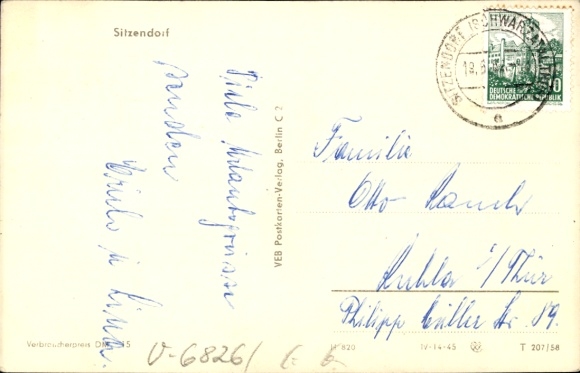 Sitzendorf
Viele Urlaubsgrüsse
senden
Erich u. Lina.
VEB Postkarten-Verlag, Berlin C 2
SITZENDORF (SCHWARZATAL)
a
DEUTSCHE
DEMOKRATISCHE REPUBLIK
10
Familie
Otto Rauch
Ruhla i/Thür
Philipp Müller Str. 19.
Verbraucherpreis DM
V-6826/
M 820
IV-14-45
T 207/58